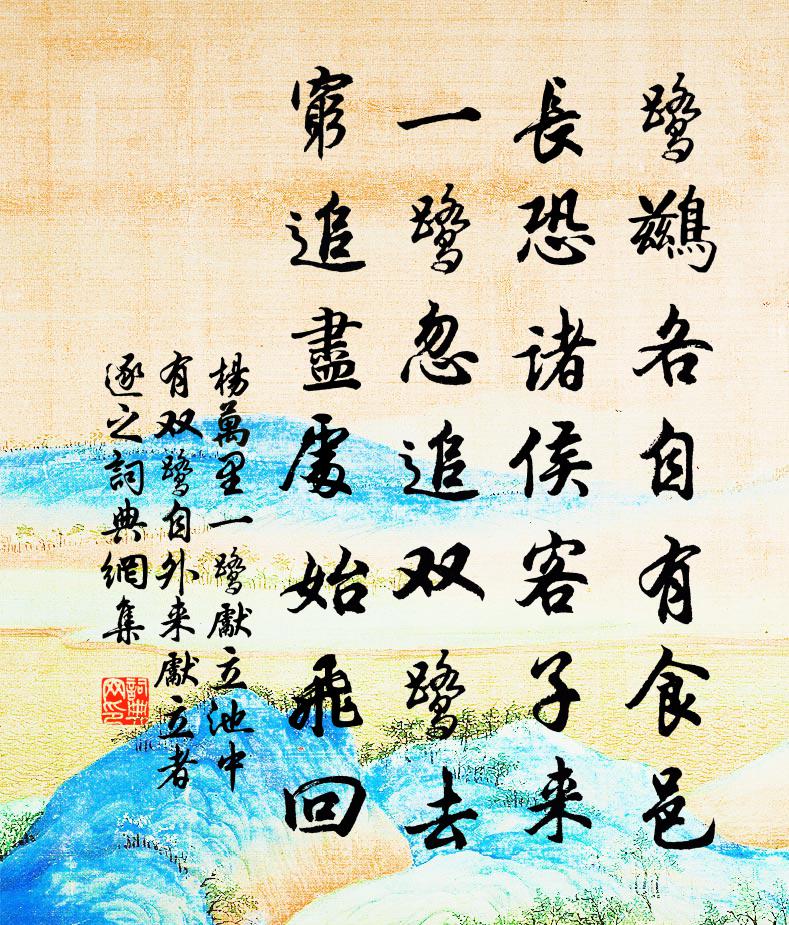 鹭鷀各自有食邑
長恐諸侯客子来
一鹭忽追双鹭去
窮追盡處始飛回
楊萬里一鹭獻立池中
有双鹭自外来獻立者
逐之詞典網集
詞典网印